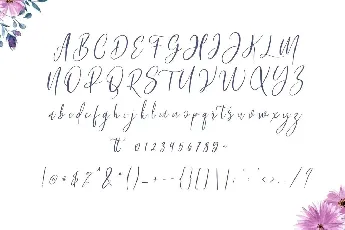 ABCDEFGHIJKLM
NOPQRSTUVWXYZ
abcdefghijklmnopqrstuvwxyz
tt 0123456789
! @ # $ % ^ & * ( ) _ + - = { } [ ] | \ : ; " ' < > , . / ?